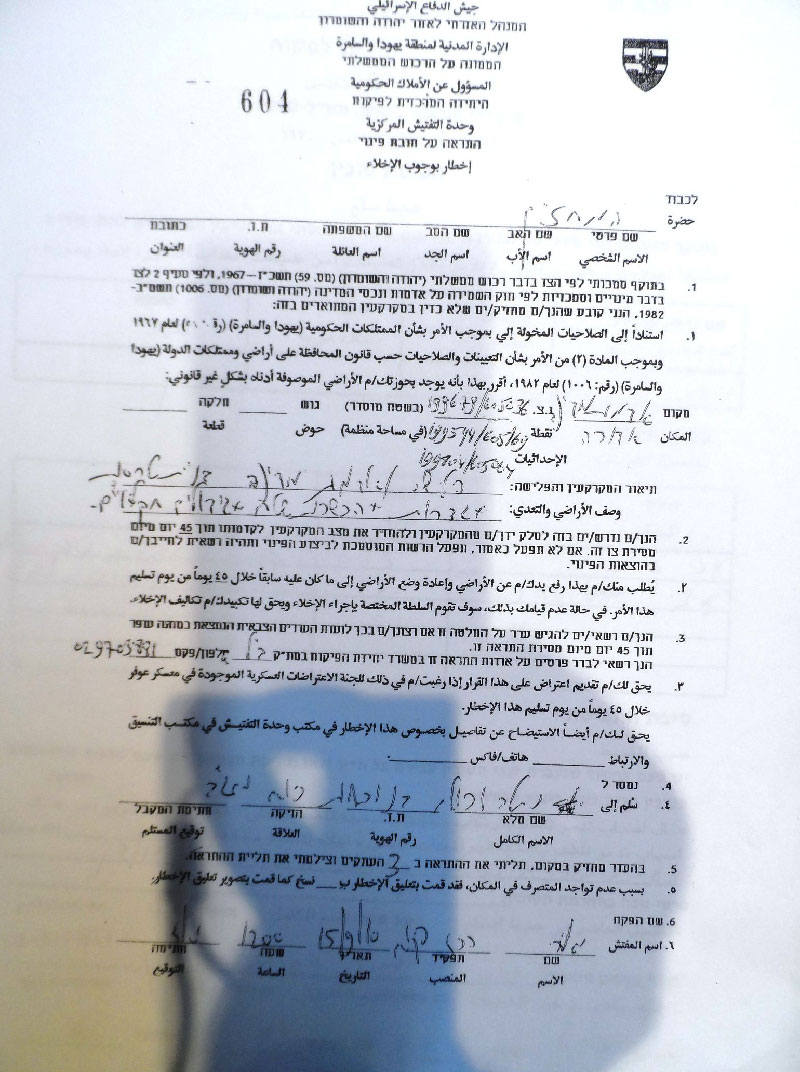 جيش الدفاع الإسرائيلي
המנהל האזרחי לאזור יהודה והשומרון
الإدارة المدنية لمنطقة يهودا والسامرة
הממונה על הרכוש הממשלתי
المسؤول عن الأملاك الحكومية
היחידה המרכזית לפיקוח
604
وحدة التفتيش المركزية
התראה על חובת פינוי
إخطار بوجوب الإخلاء
לכבוד
حضرة
שם פרטי שם האב שם הסב שם המשפחה ת.ז. כתובת
الاسم الشخصي اسم الأب اسم الجد اسم العائلة رقم الهوية العنوان
1. בתוקף סמכותי לפי הצו בדבר רכוש ממשלתי (יהודה והשומרון) (מס. 59) תשכ"ז–1967, ולפי סעיף 2 לצו
בדבר מינויים וסמכויות לפי חוק השמירה על אדמות ונכסי המדינה (יהודה ושומרון) (מס. 1006) תשמ"ב-
1982, הנני קובע שהנך/ם מחזיק/ים שלא כדין במקרקעין המתוארים בזה:
١. استناداً إلى الصلاحيات المخولة إلي بموجب الأمر بشأن الممتلكات الحكومية (يهودا والسامرة) لعام ١٩٦٧
وبموجب المادة (٢) من الأمر بشأن التعيينات والصلاحيات حسب قانون المحافظة على أراضي وممتلكات الدولة (يهودا
والسامرة) (رقم: ١٠٠٦) لعام ١٩٨٢، أقرر بهذا بأنه يوجد بحوزتك/م الأراضي الموصوفة أدناه بشكل غير قانوني:
מקום נ.צ. (בשטח מוסדר) גוש חלקה
المكان نقطة (في مساحة منظمة) حوض قطعة
الإحداثيات
תיאור המקרקעין והפלישה:
وصف الأراضي والتعدي:
2. הנך/ם נדרש/ים בזה לסלק ידך/ם מהמקרקעין ולהחזיר את מצב המקרקעין לקדמותו תוך 45 יום מיום
מסירת צו זה. אם לא תפעל כאמור, תפעל הרשות המוסמכת לביצוע הפינוי ותהיה רשאית לחייבך/ם
בהוצאות הפינוי.
٢. يُطلب منك/م بهذا رفع يدك/م عن الأراضي وإعادة وضع الأراضي إلى ما كان عليه سابقاً خلال ٤٥ يوماً من يوم تسليم
هذا الأمر. في حالة عدم قيامك بذلك، سوف تقوم السلطة المختصة بإجراء الإخلاء ويحق لها تكبيدك/م تكاليف الإخلاء.
3. הנך/ם רשאי/ים להגיש ערר על החלטה זו אם רצונך/ם בכך לועדת העררים הצבאית הנמצאת במחנה עופר
תוך 45 יום מיום מסירת התראה זו.
הנך רשאי לברר פרטים על אודות התראה זו במשרד יחידת הפיקוח במת"ק טלפון/פקס 029703331
٣. يحق لك/م تقديم اعتراض على هذا القرار إذا رغبت/م في ذلك للجنة الاعتراضات العسكرية الموجودة في معسكر عوفر
خلال ٤٥ يوماً من يوم تسليم هذا الإخطار.
يحق لك/م أيضاً الاستيضاح عن تفاصيل بخصوص هذا الإخطار في مكتب وحدة التفتيش في مكتب التنسيق
والارتباط هاتف/فاكس
4. נמסר ל
٤. سُلم إلى
שם מלא ת.ז. הזיקה חתימת המקבל
الاسم الكامل رقم الهوية العلاقة توقيع المستلم
5. בהעדר מחזיק במקום, תליתי את ההתראה ב 3 העתקים וצילמתי את תליית ההתראה.
٥. بسبب عدم تواجد المتصرف في المكان، فقد قمت بتعليق الإخطار ب نسخ كما قمت بتصوير تعليق الإخطار.
6. שם הפקח
٦. اسم المفتش
15/9/10 1200
שם תפקיד תאריך שעה חתימה
الاسم المنصب التاريخ الساعة التوقيع